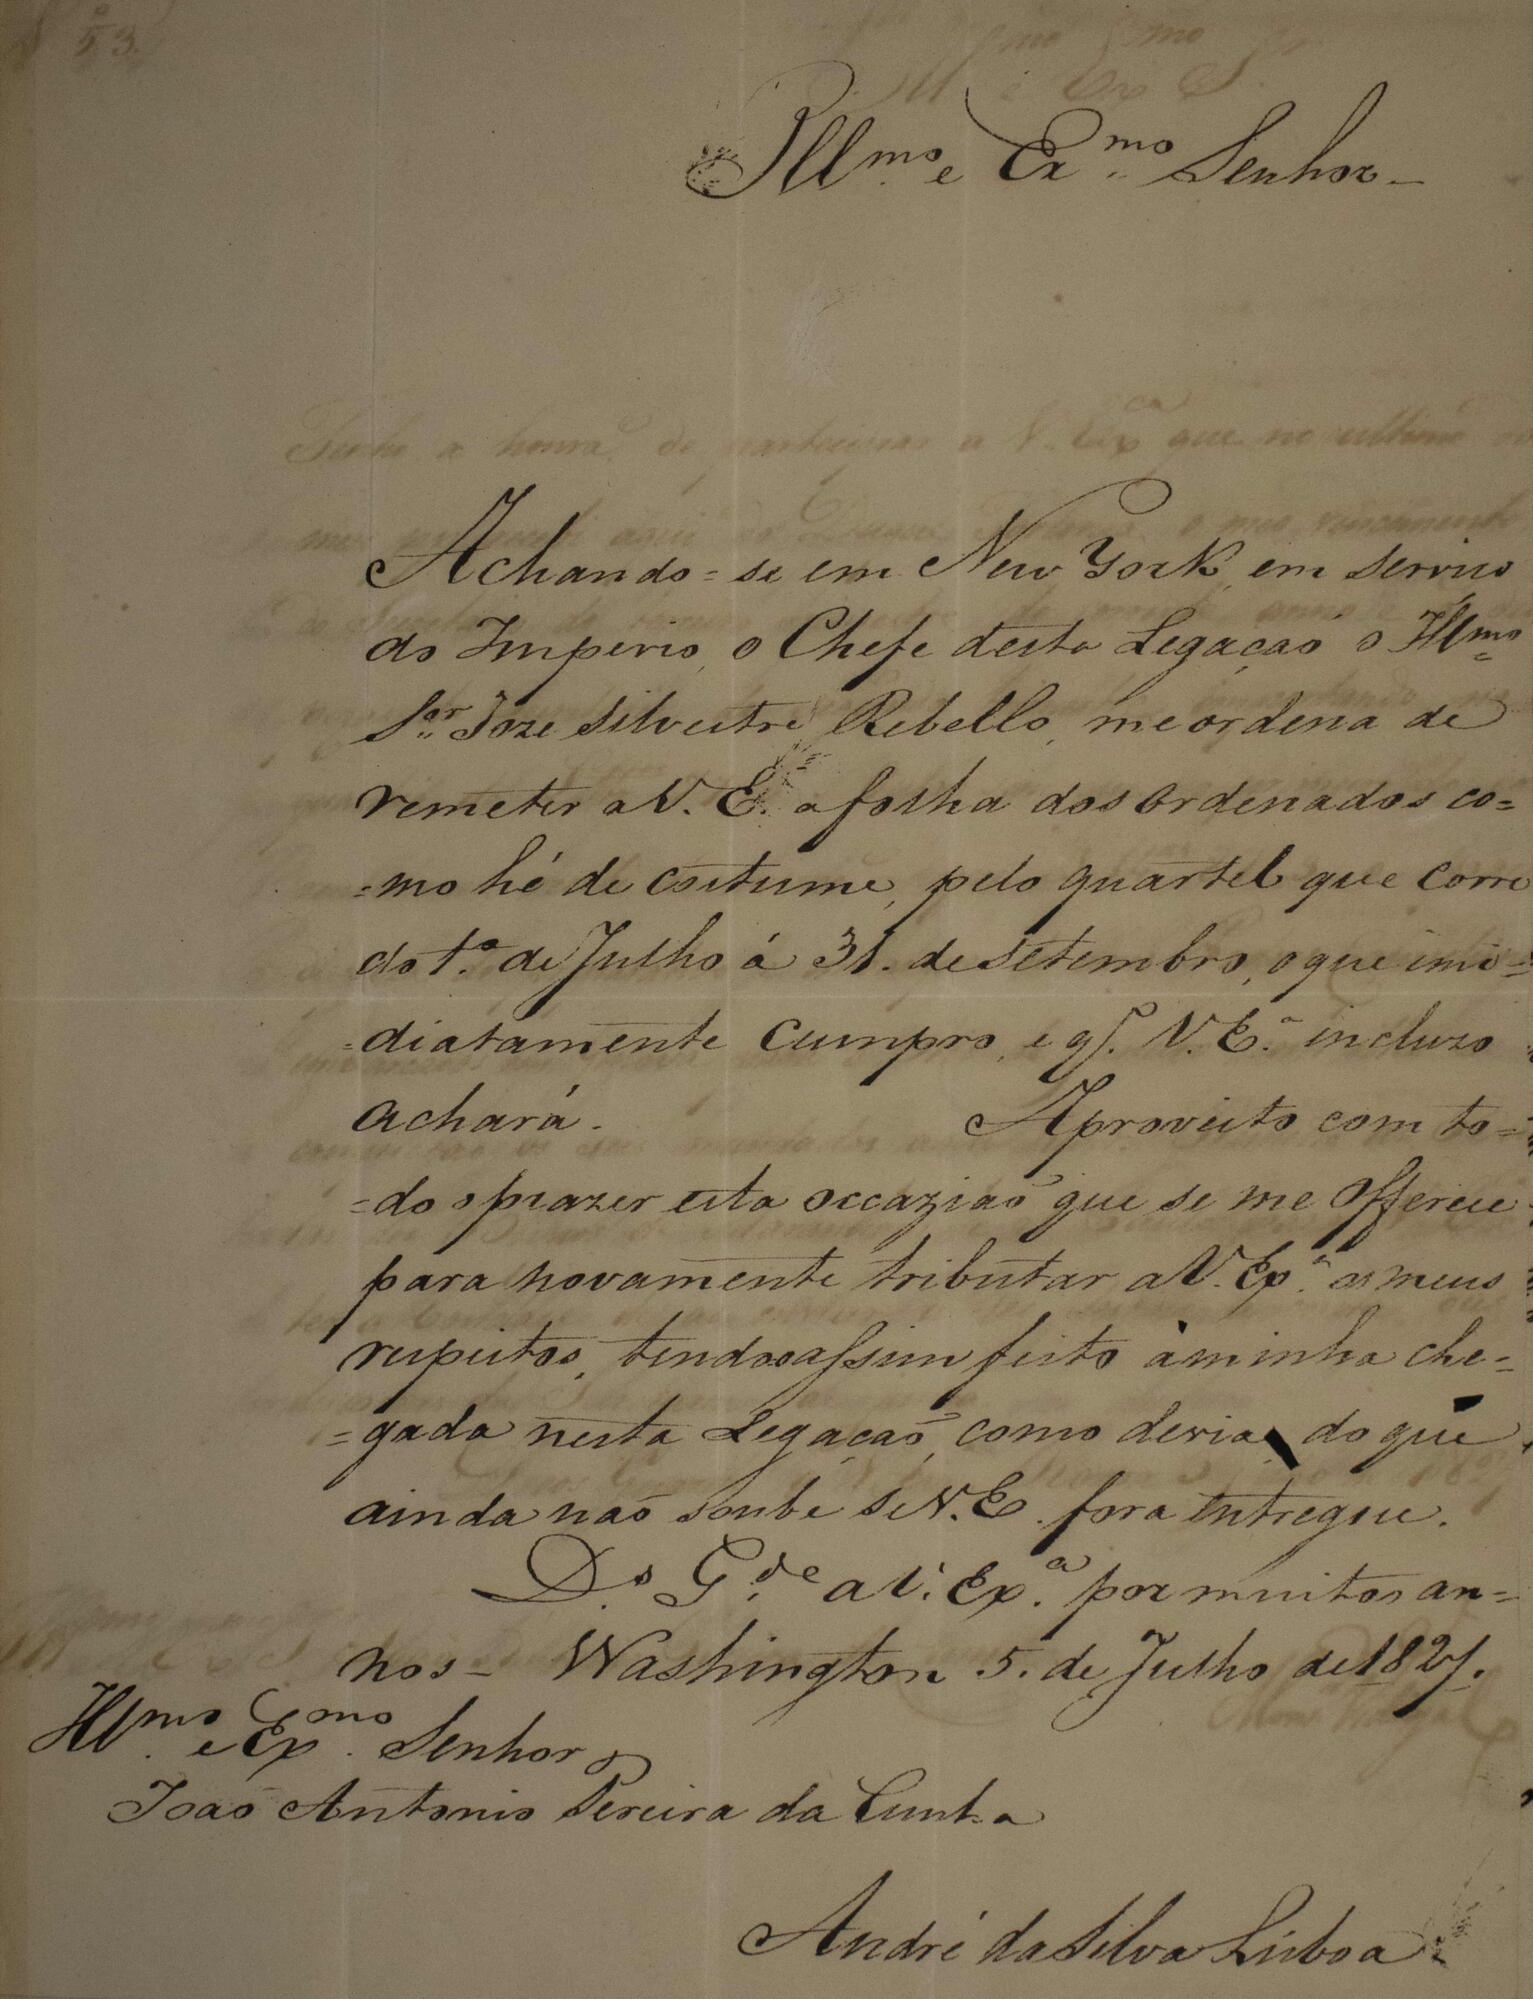 Illmo e Exmo Senhor
Achando=se em New York, em serviço
do Imperio, o Chefe desta Legação o Illmo
Snr Joze Silvestre Rebello, me ordena de
remeter a V. E. a folha dos Ordenados co=
=mo hé de costume, pelo quartel que corre
do 1.º de Julho á 31. de Setembro, o que imi=
=diatamente cumpro, e q. V. E.a incluzo
achará. Aproveito com to=
=do o prazer esta occazião que se me offerece
para novamente tributar a V. Exa. os meus
respeitos, tendo assim feito á minha che=
=gada nesta Legação, como devia, do que
ainda não soube se V. E. fora entregue.
D.s G.de a V. Ex.a por muitos an=
nos _ Washington 5. de Julho de 1827.
Illmo e Exmo Senhor
João Antonio Pereira da Cunha
André da Silva Lisboa